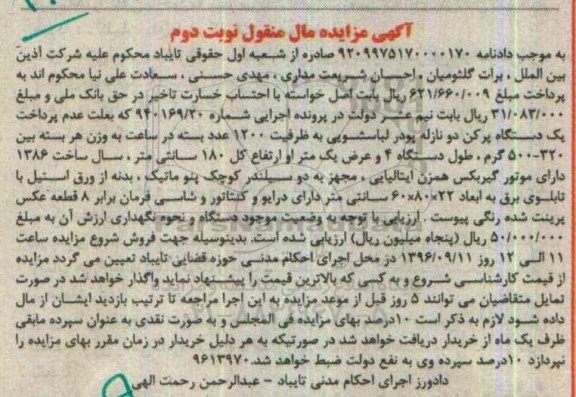 آگهی مزایده مال منقول نوبت دوم
به موجب دادنامه ۹۲۰۹۹۷۵۱۷۰۰۰۰۱۷۰ صادره از شعبه اول حقوقی تایباد محکوم علیه شرکت آذین
بین الملل ، برات گلثومیان ، احسان شریعت مداری ، مهدی حسنی ، سعادت علی نیا محکوم اند به
پرداخت مبلغ ۶۲۱/۶۶۰/۰۰۹ ریال بابت اصل خواسته با احتساب خسارت تاخیر در حق بانک ملی و مبلغ
۳۱/۰۸۳/۰۰۰ ریال بابت نیم عشر دولت در پرونده اجرایی شماره ۹۴۰۱۶۹/۲۰ که بعلت عدم پرداخت
یک دستگاه پرکن دو نازله پودر لباسشویی به ظرفیت ۱۲۰۰ عدد بسته در ساعت به وزن هر بسته بین
۳۲۰-۵۰۰ گرم ، طول دستگاه ۴ و عرض یک متر او ارتفاع کل ۱۸۰ سانتی متر ، سال ساخت ۱۳۸۶
دارای موتور گیربکس همزن ایتالیایی ، مجهز به دو سیلندر کوچک پنو ماتیک ، بدنه از ورق استیل با
تابلوی برق به ابعاد ۲۲×۸۰×۶۰ سانتی متر دارای درایو و کنتاتور و شاسی فرمان برابر ۸ قطعه عکس
پرینت شده رنگی پیوست . ارزیابی با توجه به وضعیت موجود دستگاه و نحوه نگهداری ارزش آن به مبلغ
۵۰/۰۰۰/۰۰۰ ریال (پنجاه میلیون ریال) ارزیابی شده است. بدینوسیله جهت فروش شروع مزایده ساعت
۱۱ الی ۱۲ روز ۱۳۹۶/۰۹/۱۱ در محل اجرای احکام مدنی حوزه قضایی تایباد تعیین می گردد مزایده
از قیمت کارشناسی شروع و به کسی که بالاترین قیمت را پیشنهاد نماید واگذار خواهد شد در صورت
تمایل متقاضیان می توانند ۵ روز قبل از موعد مزایده به این اجرا مراجعه تا ترتیب بازدید ایشان از مال
داده شود لازم به ذکر است ۱۰درصد بهای مزایده فی المجلس و به صورت نقدی به عنوان سپرده مابقی
ظرف یک ماه از خریدار دریافت خواهد شد در صورتیکه به هر دلیل خریدار در زمان مقرر بهای مزایده را
نپردازد ۱۰درصد سپرده وی به نفع دولت ضبط خواهد شد. ۹۶۱۳۹۷۰
دادورز اجرای احکام مدنی تایباد - عبدالرحمن رحمت الهی